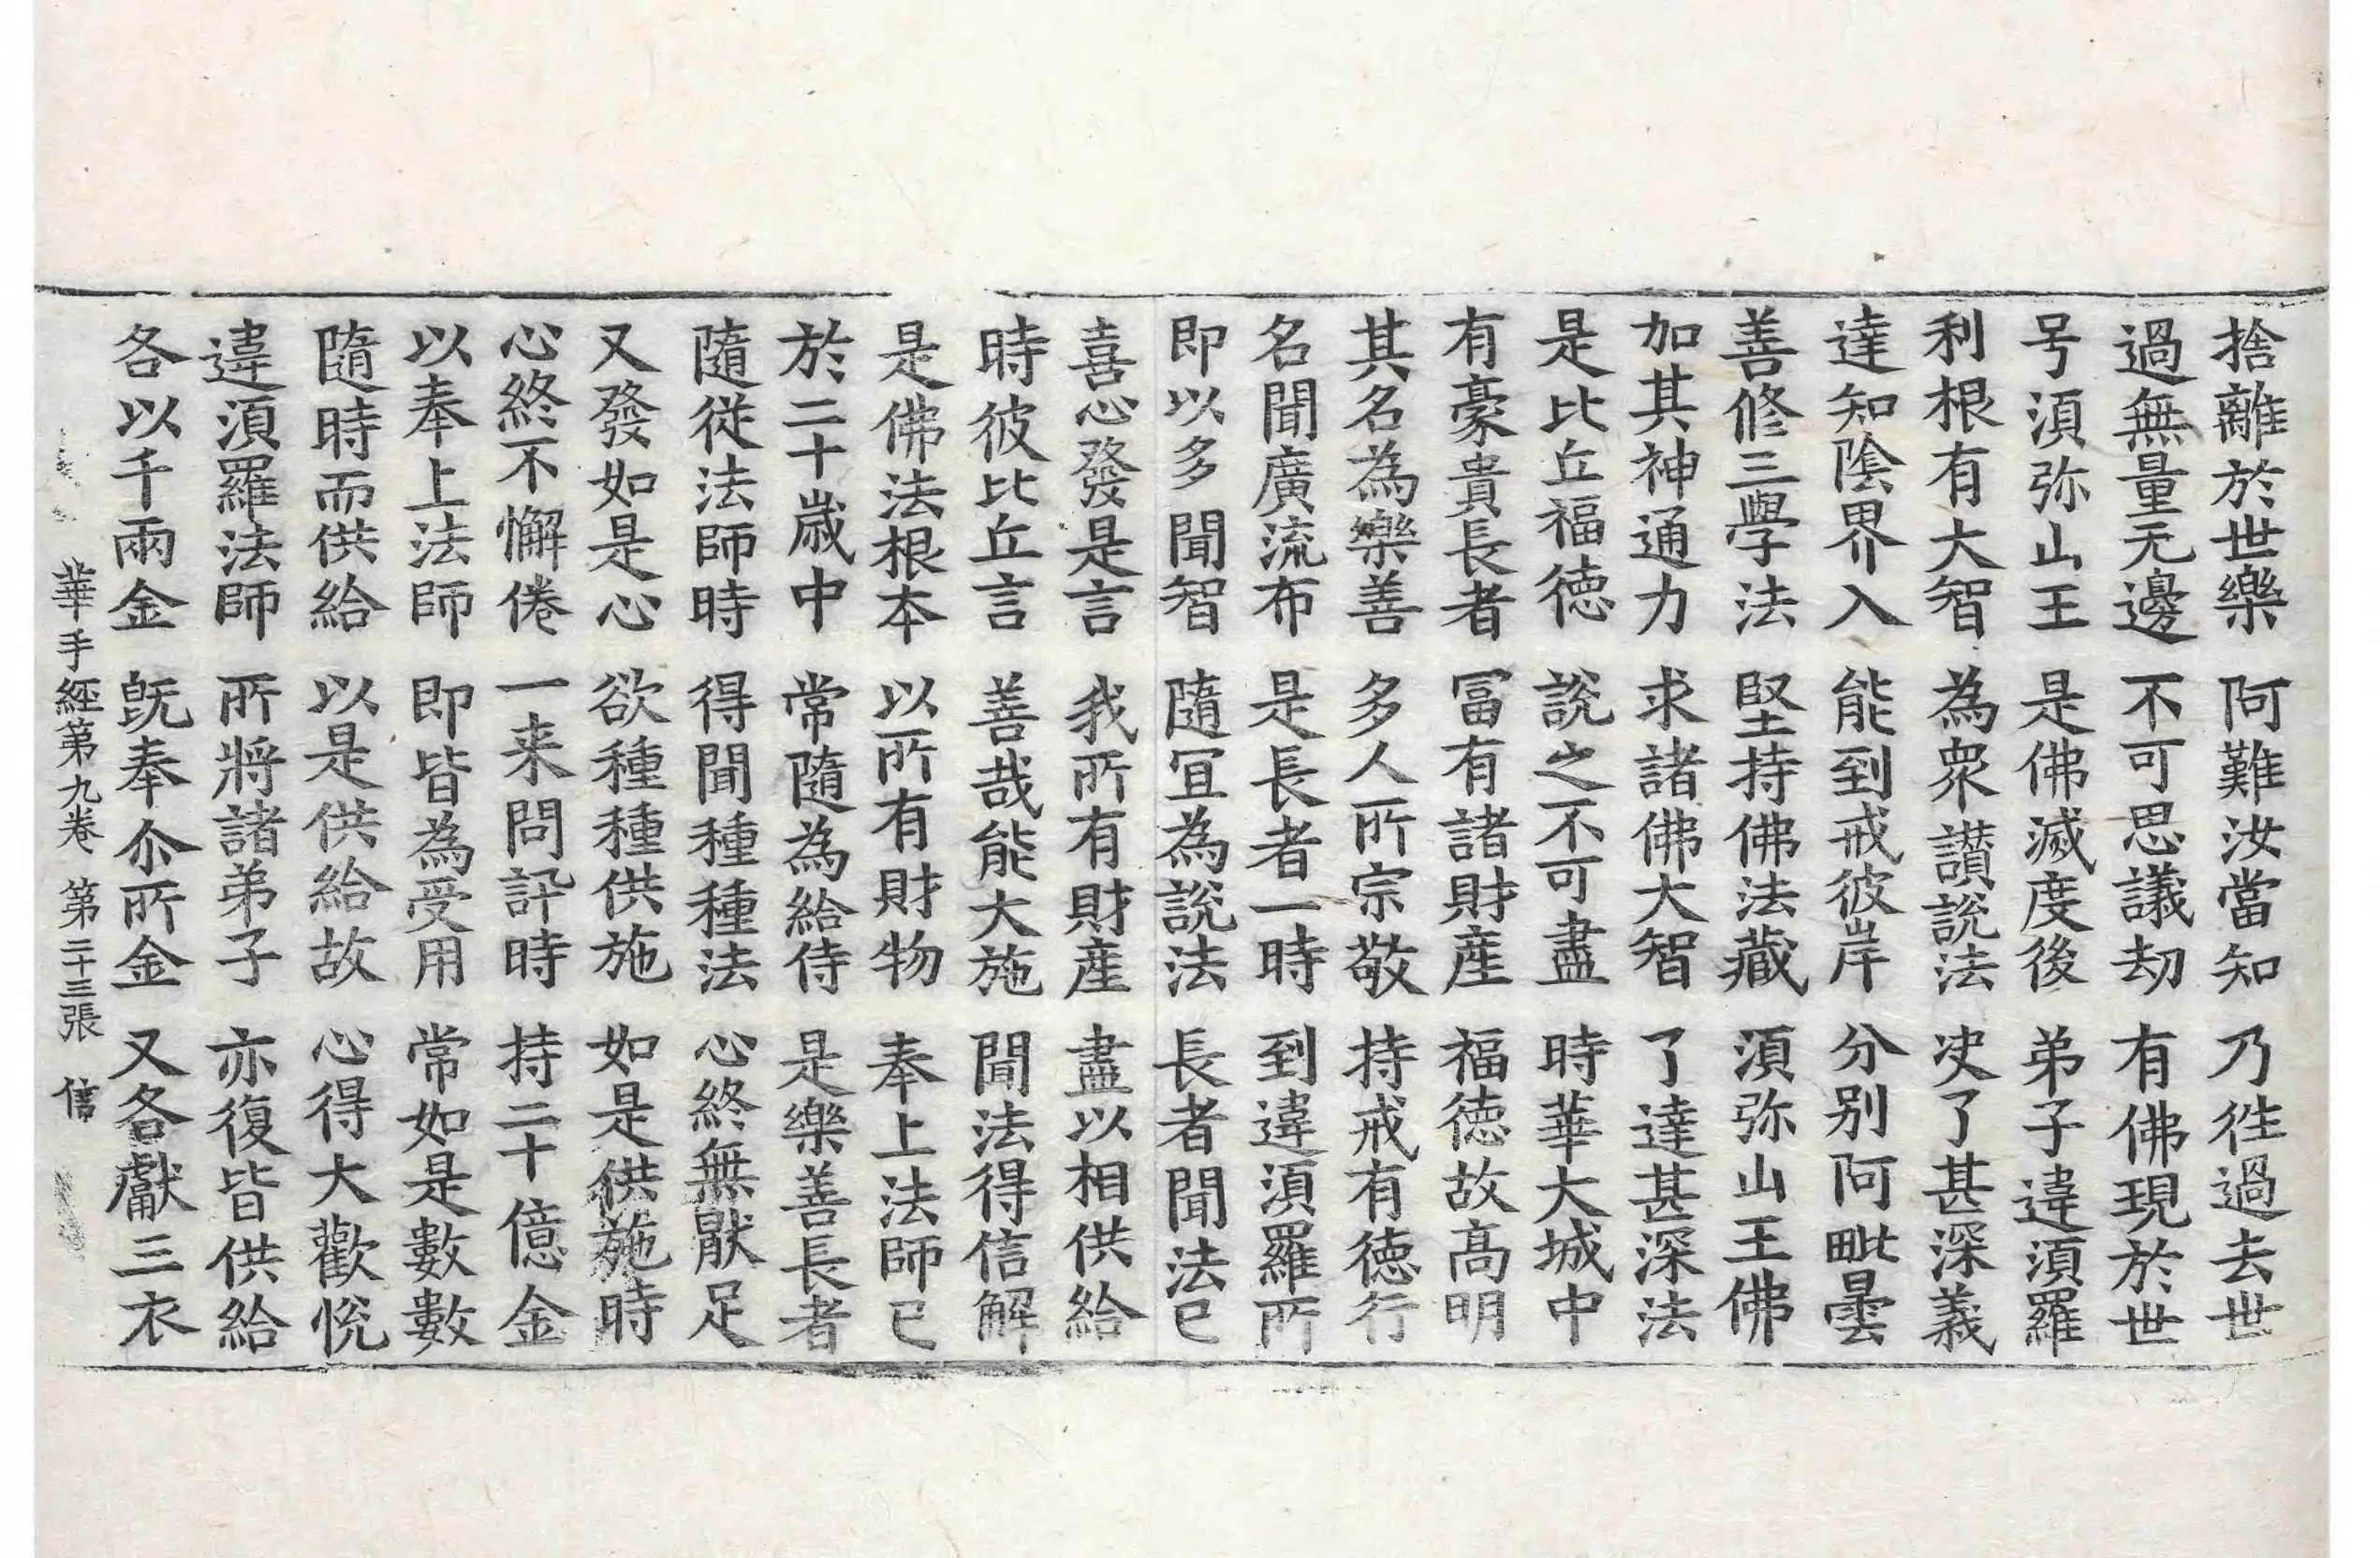 捨離於世樂　阿難汝當知　乃徃過去世
過無量无邊　不可思議劫　有佛現於世
号湏弥山王　是佛滅度後　弟子違湏羅
利根有大智　為衆讃說法　决了甚深義
達知陰界入　能到戒彼岸　分別阿毗曇
善修三學法　堅持佛法藏　湏弥山王佛
加其神通力　求諸佛大智　了達甚深法
是比丘福德　說之不可盡　時華大城中
有豪貴長者　冨有諸財産　福德故高明
其名為樂善　多人所宗敬　持戒有德行
名聞廣流布　是長者一時　到違湏羅所
即以多聞智　隨冝為說法　長者聞法已
喜心發是言　我所有財産　盡以相供給
時彼比丘言　善哉能大施　聞法得信解
是佛法根本　以所有財物　奉上法師已
於二十歲中　常隨為給侍　是樂善長者
隨從法師時　得聞種種法　心終無猒足
又發如是心　欲種種供施　如是供施時
心終不懈倦　一来問訊時　持二十億金
以奉上法師　即皆為受用　常如是數數
隨時而供給　以是供給故　心得大歡悅
違湏羅法師　所將諸弟子　亦復皆供給
各以千兩金　旣奉尒所金　又各獻三衣
華手經第九卷　第二十三張　信